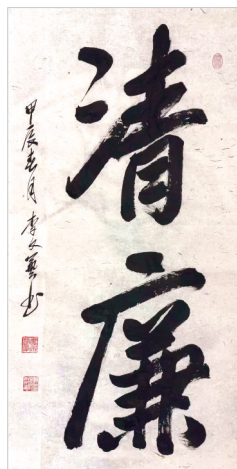 清廉
甲辰春月李文英书